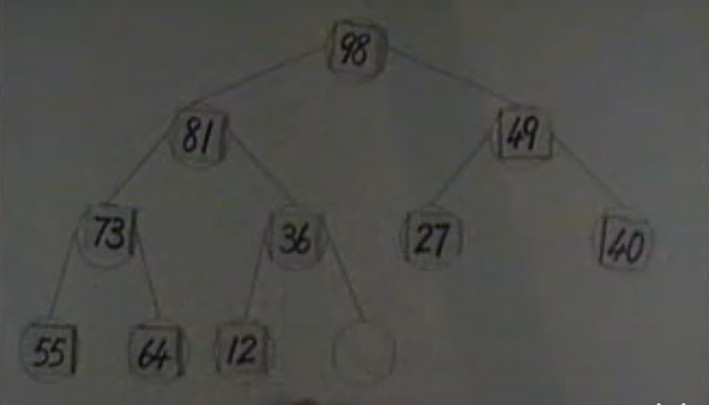 98
81 49
73 36 27 40
55 64 12